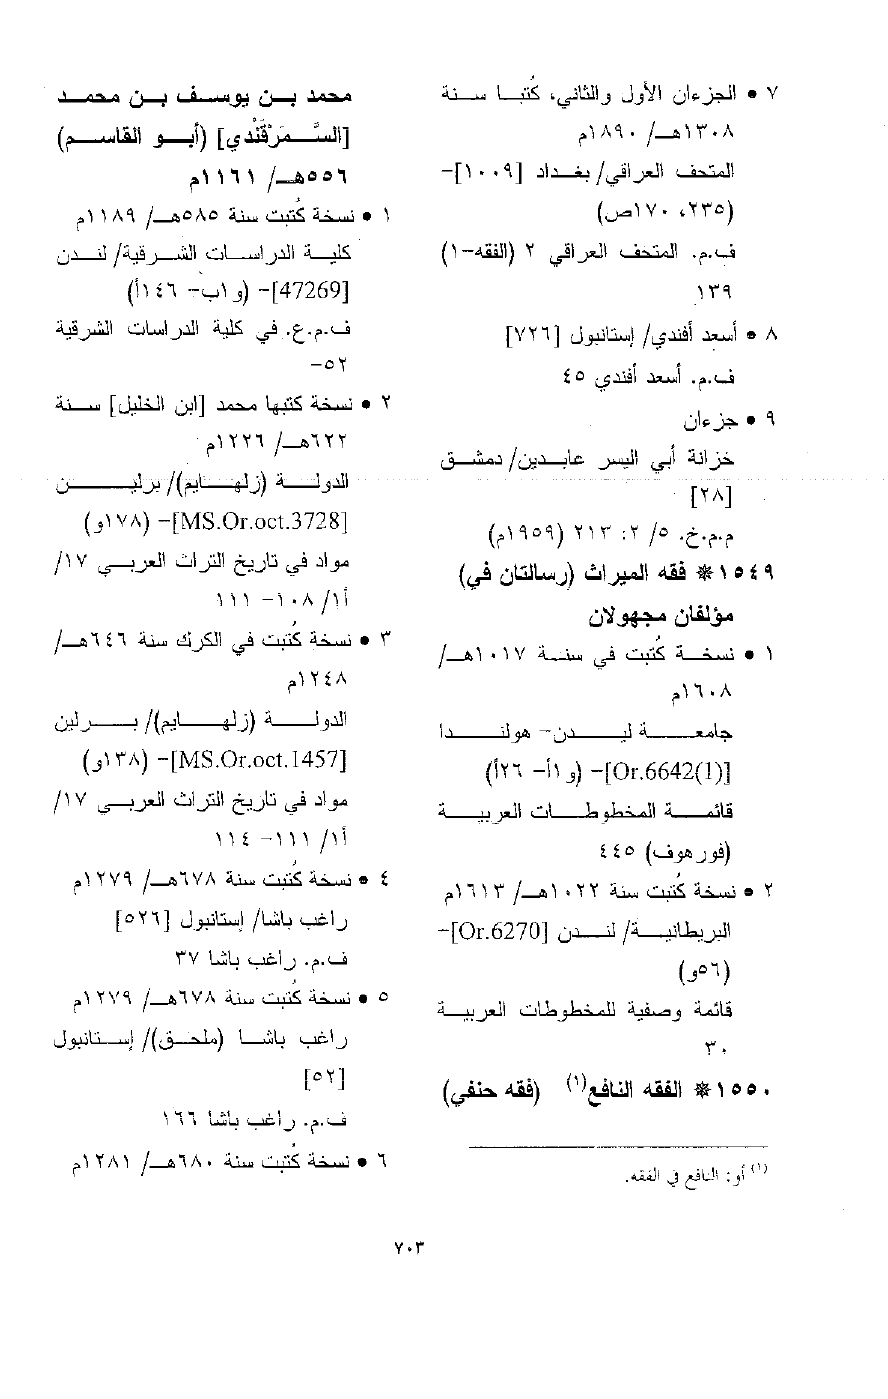 ٧ • الجزءان الأول والثاني، كُتبا سنة
١٣٠٨هـ/ ١٨٩٠م
المتحف العراقي/ بغداد [١٠٠٩]-
(٢٣٥، ١٧٠ص)
ف.م. المتحف العراقي ٢ (الفقه-١)
١٣٩
٨ • أسعد أفندي/ إستانبول [٧٢٦]
ف.م. أسعد أفندي ٤٥
٩ • جزءان
خزانة أبي اليسر عابدين/ دمشق
[٢٨]
م.م.خ. ٥/ ٢: ٢١٣ (١٩٥٩م)
١٥٤٩ * فقه الميراث (رسالتان في)
مؤلفان مجهولان
١ • نسخة كُتبت في سنة ١٠١٧هـ/
١٦٠٨م
جامعة ليدن- هولندا
[Or.6642(1)]- (و١أ- ٢٦أ)
قائمة المخطوطات العربية
(فورهوف) ٤٤٥
٢ • نسخة كُتبت سنة ١٠٢٢هـ/ ١٦١٣م
البريطانية/ لندن [Or.6270]-
(٥٦و)
قائمة وصفية للمخطوطات العربية
٣٠
١٥٥٠ * الفقه النافع(١) (فقه حنفي)
(١) أو: النافع في الفقه.
محمد بن يوسف بن محمد
[السَّمَرْقَنْدي] (أبو القاسم)
٥٥٦هـ/ ١١٦١م
١ • نسخة كُتبت سنة ٥٨٥هـ/ ١١٨٩م
كلية الدراسات الشرقية/ لندن
[47269]- (و١ب- ١٤٦أ)
ف.م.ع. في كلية الدراسات الشرقية
٥٢-
٢ • نسخة كتبها محمد [ابن الخليل] سنة
٦٢٢هـ/ ١٢٢٦م
الدولة (زلهايم)/ برلين
[MS.Or.oct.3728]- (١٧٨و)
مواد في تاريخ التراث العربي ١٧/
أ١/ ١٠٨- ١١١
٣ • نسخة كُتبت في الكرك سنة ٦٤٦هـ/
١٢٤٨م
الدولة (زلهايم)/ برلين
[MS.Or.oct.1457]- (١٣٨و)
مواد في تاريخ التراث العربي ١٧/
أ١/ ١١١- ١١٤
٤ • نسخة كُتبت سنة ٦٧٨هـ/ ١٢٧٩م
راغب باشا/ إستانبول [٥٢٦]
ف.م. راغب باشا ٣٧
٥ • نسخة كُتبت سنة ٦٧٨هـ/ ١٢٧٩م
راغب باشا (ملحق)/ إستانبول
[٥٢]
ف.م. راغب باشا ١٦٦
٦ • نسخة كُتبت سنة ٦٨٠هـ/ ١٢٨١م
٧٠٣